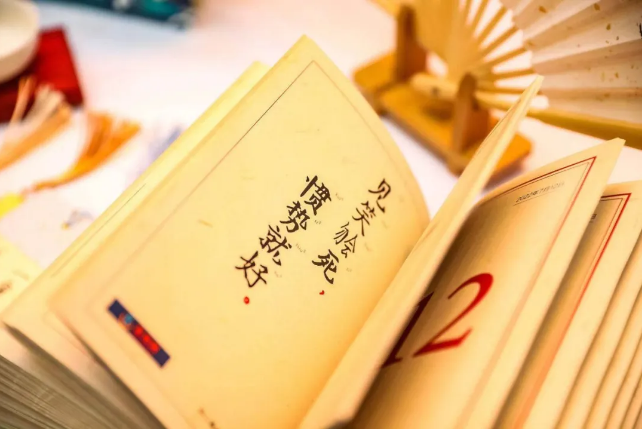 见笑𫧃死，
惯势就好。
12